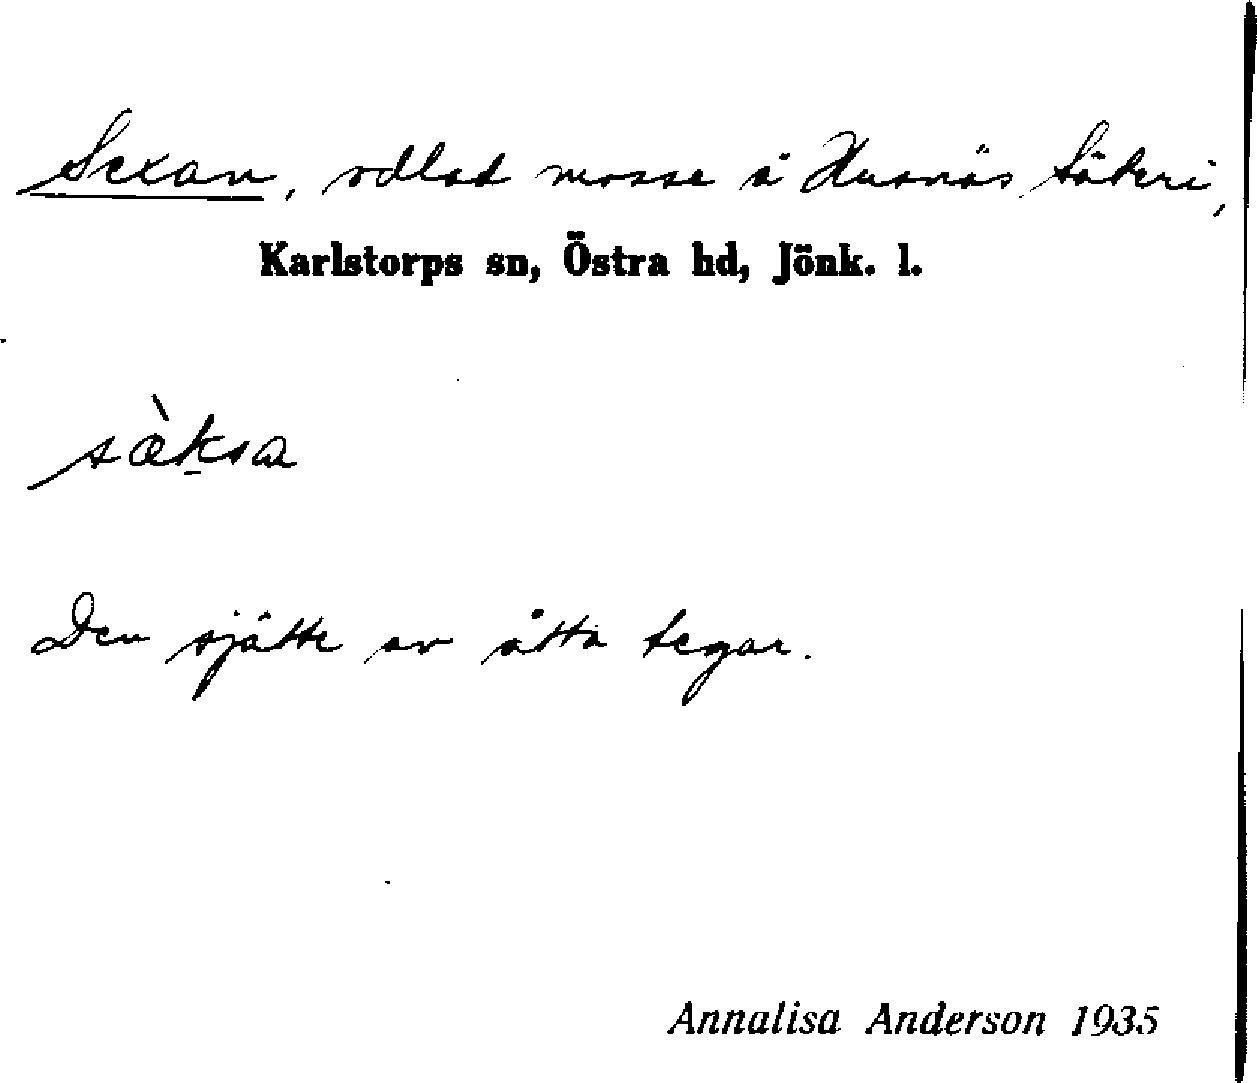 Sexan, odlad mosse å Husnäs Säteri,
Karlstorps sn, Östra hd, Jönk. l.
sæ̀ksa
Den sjätte av åtta tegar.
Annalisa Anderson 1935